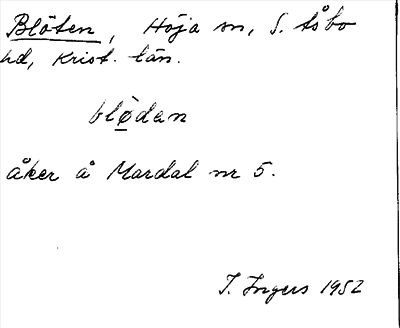 Blöten, Höja sn, S. Åsbo
hd, Krist. län.
blø̀dan
åker å Mardal nr 5.
I. Ingers 1952